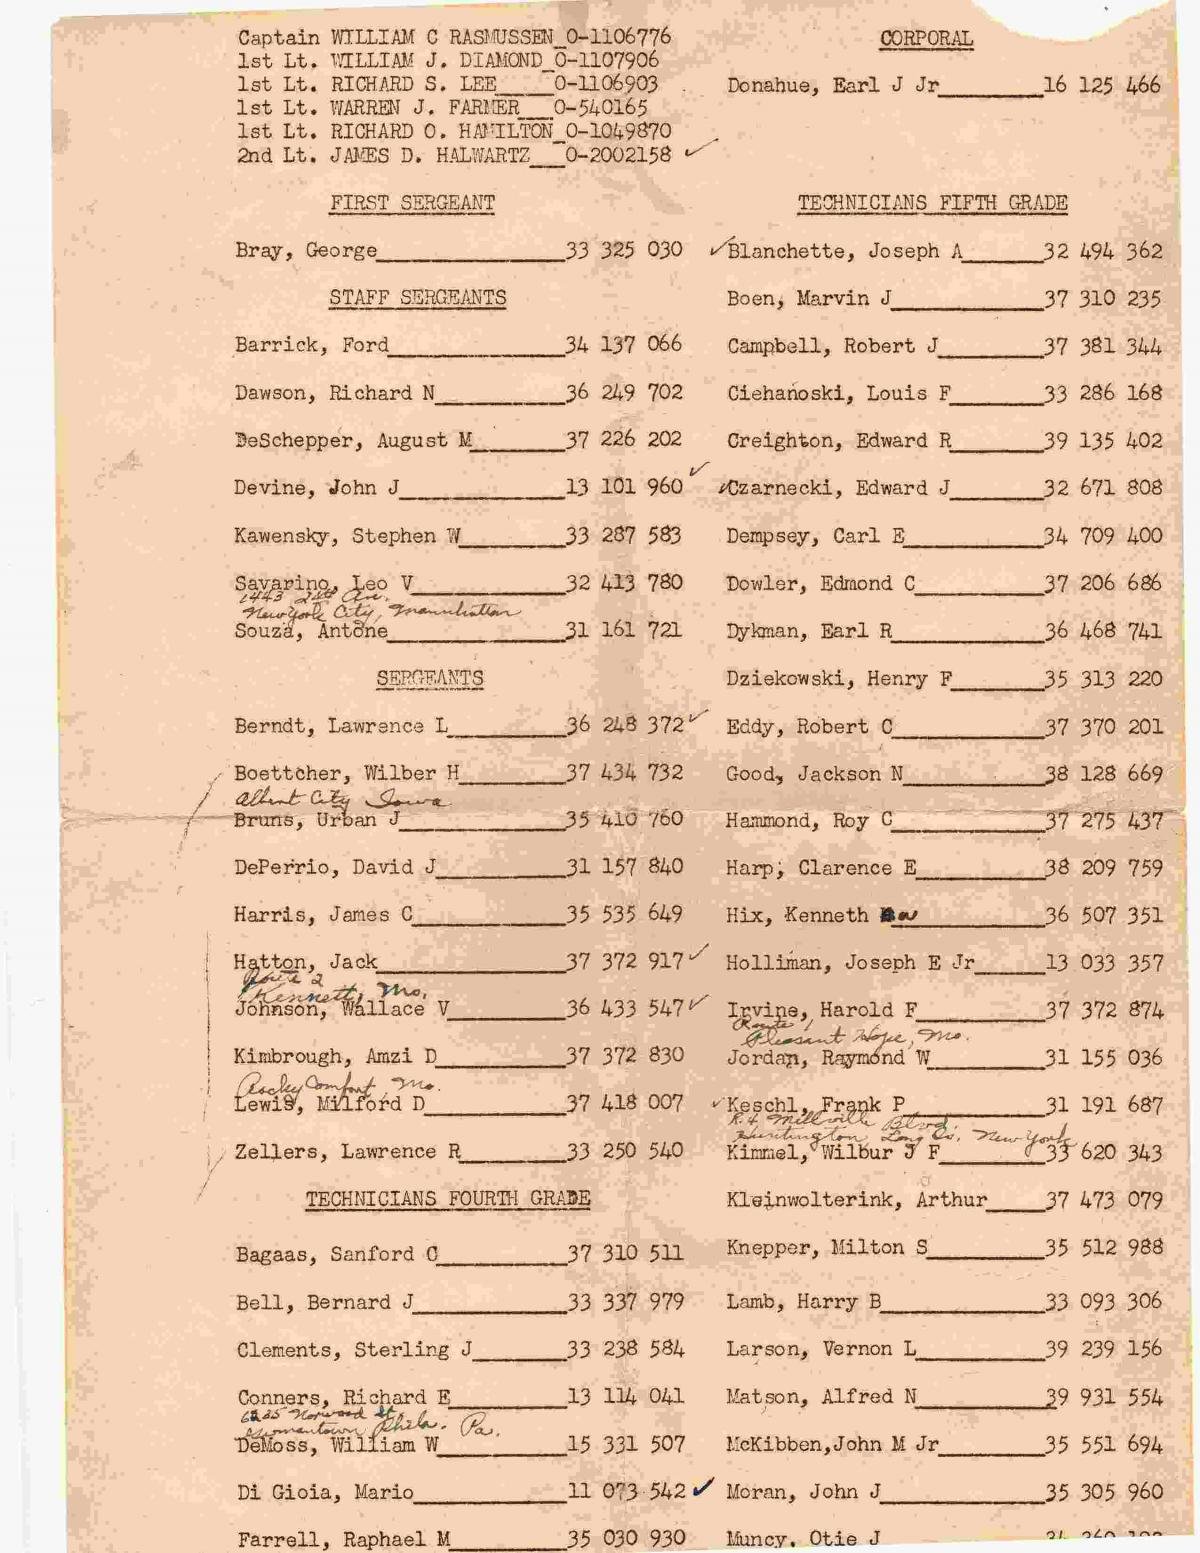 Captain WILLIAM C RASMUSSEN_O-1106776
1st Lt. WILLIAM J. DIAMOND_O-1107906
1st Lt. RICHARD S. LEE____O-1106903
1st Lt. WARREN J. FARMER___O-540165
1st Lt. RICHARD O. HAMILTON_O-1049870
2nd Lt. JAMES D. HALWARTZ___O-2002158 ✓
FIRST SERGEANT
Bray, George________33 325 030
STAFF SERGEANTS
Barrick, Ford________34 137 066
Dawson, Richard N________36 249 702
DeSchepper, August M________37 226 202
Devine, John J________13 101 960 ✓
Kawensky, Stephen W________33 287 583
Savarino, Leo V________32 413 780
1443 24th Av.
New York City, Mannhattan
Souza, Antone________31 161 721
SERGEANTS
Berndt, Lawrence L________36 248 372 ✓
Boettcher, Wilber H________37 434 732
Albert City Iowa
Bruns, Urban J________35 410 760
DePerrio, David J________31 157 840
Harris, James C________35 535 649
Hatton, Jack________37 372 917 ✓
Route 2
Kennett, Mo.
Johnson, Wallace V________36 433 547 ✓
Kimbrough, Amzi D________37 372 830
Rocky Comfort, Mo.
Lewis, Milford D________37 418 007
Zellers, Lawrence R________33 250 540
TECHNICIANS FOURTH GRADE
Bagaas, Sanford C________37 310 511
Bell, Bernard J________33 337 979
Clements, Sterling J________33 238 584
Conners, Richard E________13 114 041
Norwood St.
Germantown Phila. Pa.
DeMoss, William W________15 331 507
Di Gioia, Mario________11 073 542 ✓
Farrell, Raphael M________35 030 930
CORPORAL
Donahue, Earl J Jr________16 125 466
TECHNICIANS FIFTH GRADE
✓ Blanchette, Joseph A________32 494 362
Boen, Marvin J________37 310 235
Campbell, Robert J________37 381 344
Ciehanoski, Louis F________33 286 168
Creighton, Edward R________39 135 402
✓ Czarnecki, Edward J________32 671 808
Dempsey, Carl E________34 709 400
Dowler, Edmond C________37 206 686
Dykman, Earl R________36 468 741
Dziekowski, Henry F________35 313 220
Eddy, Robert C________37 370 201
Good, Jackson N________38 128 669
Hammond, Roy C________37 275 437
Harp, Clarence E________38 209 759
Hix, Kenneth________36 507 351
Holliman, Joseph E Jr________13 033 357
Irvine, Harold F________37 372 874
Route 1
Pleasant Hope, Mo.
Jordan, Raymond W________31 155 036
✓ Keschl, Frank P________31 191 687
R.4 Millville Blvd.
Huntington, Long Is. New York
Kimmel, Wilbur J F________33 620 343
Kleinwolterink, Arthur________37 473 079
Knepper, Milton S________35 512 988
Lamb, Harry B________33 093 306
Larson, Vernon L________39 239 156
Matson, Alfred N________39 931 554
McKibben,John M Jr________35 551 694
Moran, John J________35 305 960
Muncy, Otie J